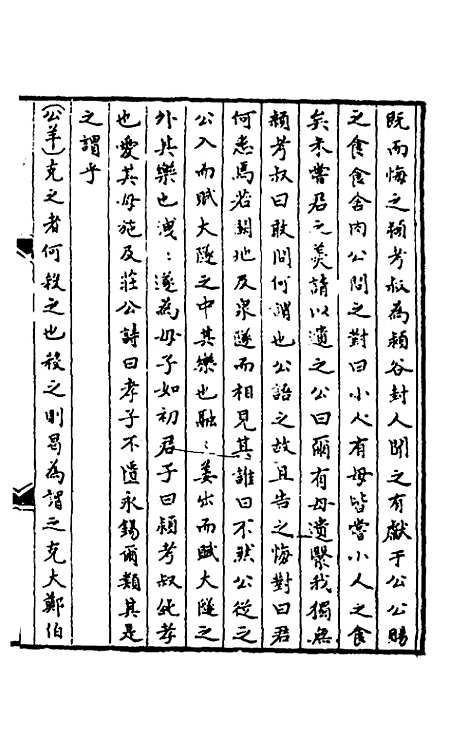 既而悔之潁考叔為潁谷封人聞之有獻于公公賜
之食食舍肉公問之對曰小人有母皆嘗小人之食
矣未嘗君之羮請以遺之公曰爾有母遺繄我獨無
潁考叔曰敢問何謂也公語之故且告之悔對曰君
何患焉若闕地及泉隧而相見其誰曰不然公從之
公入而賦大隧之中其樂也融:姜出而賦大隧之
外其樂也洩:遂為母子如初君子曰潁考叔純孝
也愛其母施及莊公詩曰孝子不匱永錫爾類其是
之謂乎
(公羊)克之者何殺之也殺之則曷為謂之克大鄭伯